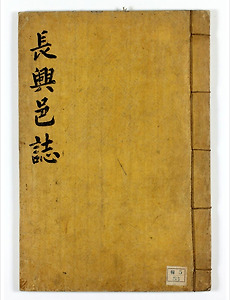 長興邑誌